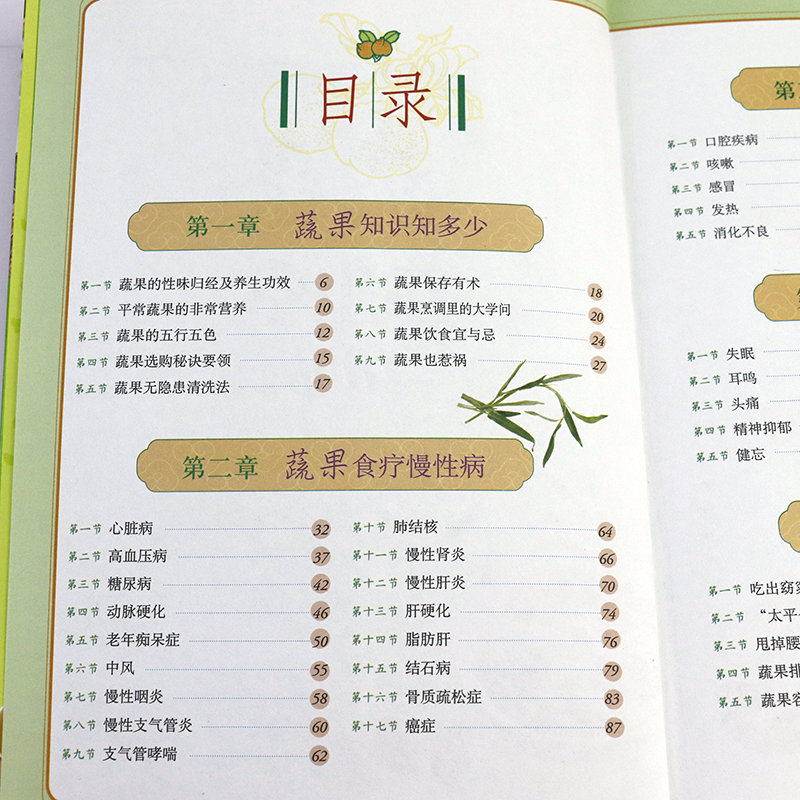 目录
第一章 蔬果知识知多少
第一节 蔬果的性味归经及养生功效 6
第二节 平常蔬果的非常营养 10
第三节 蔬果的五行五色 12
第四节 蔬果选购秘诀要领 15
第五节 蔬果无隐患清洗法 17
第六节 蔬果保存有术 18
第七节 蔬果烹调里的大学问 20
第八节 蔬果饮食宜与忌 24
第九节 蔬果也惹祸 27
第二章 蔬果食疗慢性病
第一节 心脏病 32
第二节 高血压病 37
第三节 糖尿病 42
第四节 动脉硬化 46
第五节 老年痴呆症 50
第六节 中风 55
第七节 慢性咽炎 58
第八节 慢性支气管炎 60
第九节 支气管哮喘 62
第十节 肺结核 64
第十一节 慢性肾炎 66
第十二节 慢性肝炎 70
第十三节 肝硬化 74
第十四节 脂肪肝 76
第十五节 结石病 79
第十六节 骨质疏松症 83
第十七节 癌症 87
第
第一节 口腔疾病
第二节 咳嗽
第三节 感冒
第四节 发热
第五节 消化不良
第一节 失眠
第二节 耳鸣
第三节 头痛
第四节 精神抑郁
第五节 健忘
第一节 吃出窈
第二节 “太平
第三节 甩掉腰
第四节 蔬果排
第五节 蔬果容